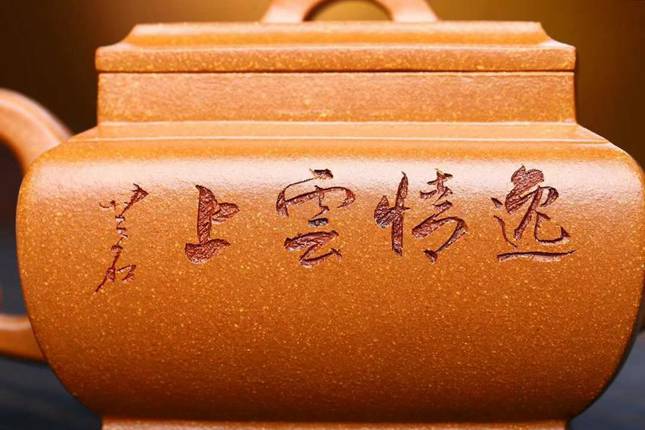 逸情雲上